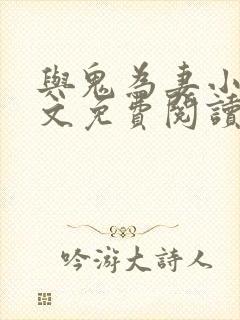 與鬼為妻小
文免費閱讀
吟游大詩人